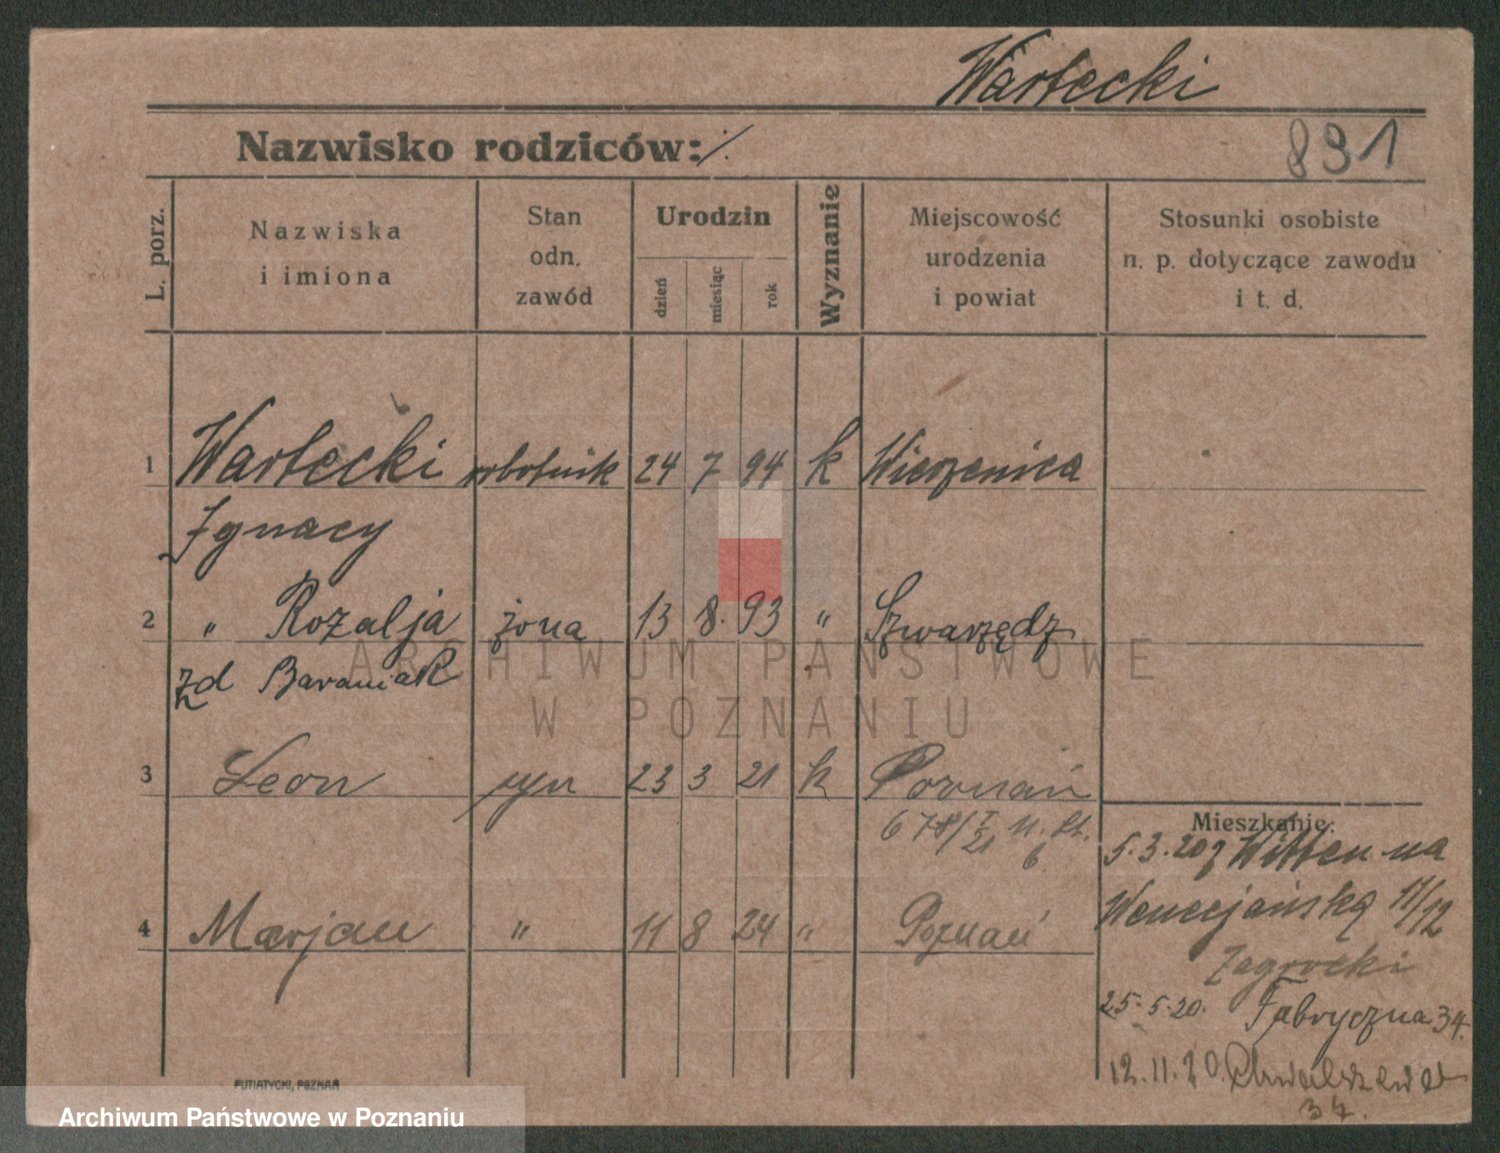 Wartecki
Nazwisko rodziców: ./.
891
L. porz.
Nazwiska
i imiona
Stan
odn.
zawód
Urodzin
dzień
miesiąc
rok
Wyznanie
Miejscowość
urodzenia
i powiat
Stosunki osobiste
n. p. dotyczące zawodu
i t. d.
1 Wartecki robotnik 24 7 94 k Wierzenica
Ignacy
2 " Rozalja żona 13 8. 93 " Szwarzędz
zd Baraniak
3 Leon syn 23 3 21 k Poznań
4 Marjan " 11 8 24 " Poznań
Mieszkanie:
5.3.20 z Witten na
Wenecjańską 11/12
Zagrocki
25.5.20. Fabryczna 34.
12.11.20.
37.
PUTIATYCKI, POZNAŃ
ARCHIWUM PAŃSTWOWE
W POZNANIU
Archiwum Państwowe w Poznaniu